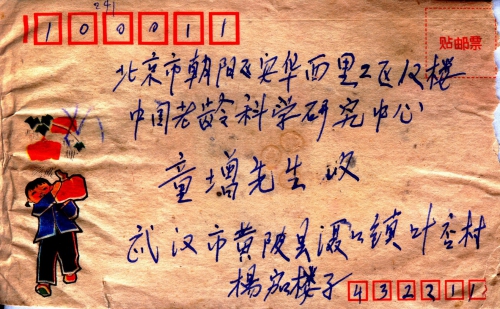 241
100011
贴邮票
北京市朝阳区安华西里二区12楼
中国老龄科学研究中心
童增先生 收
武汉市黄陂县滠口镇叶店村
楊家楼子
432211